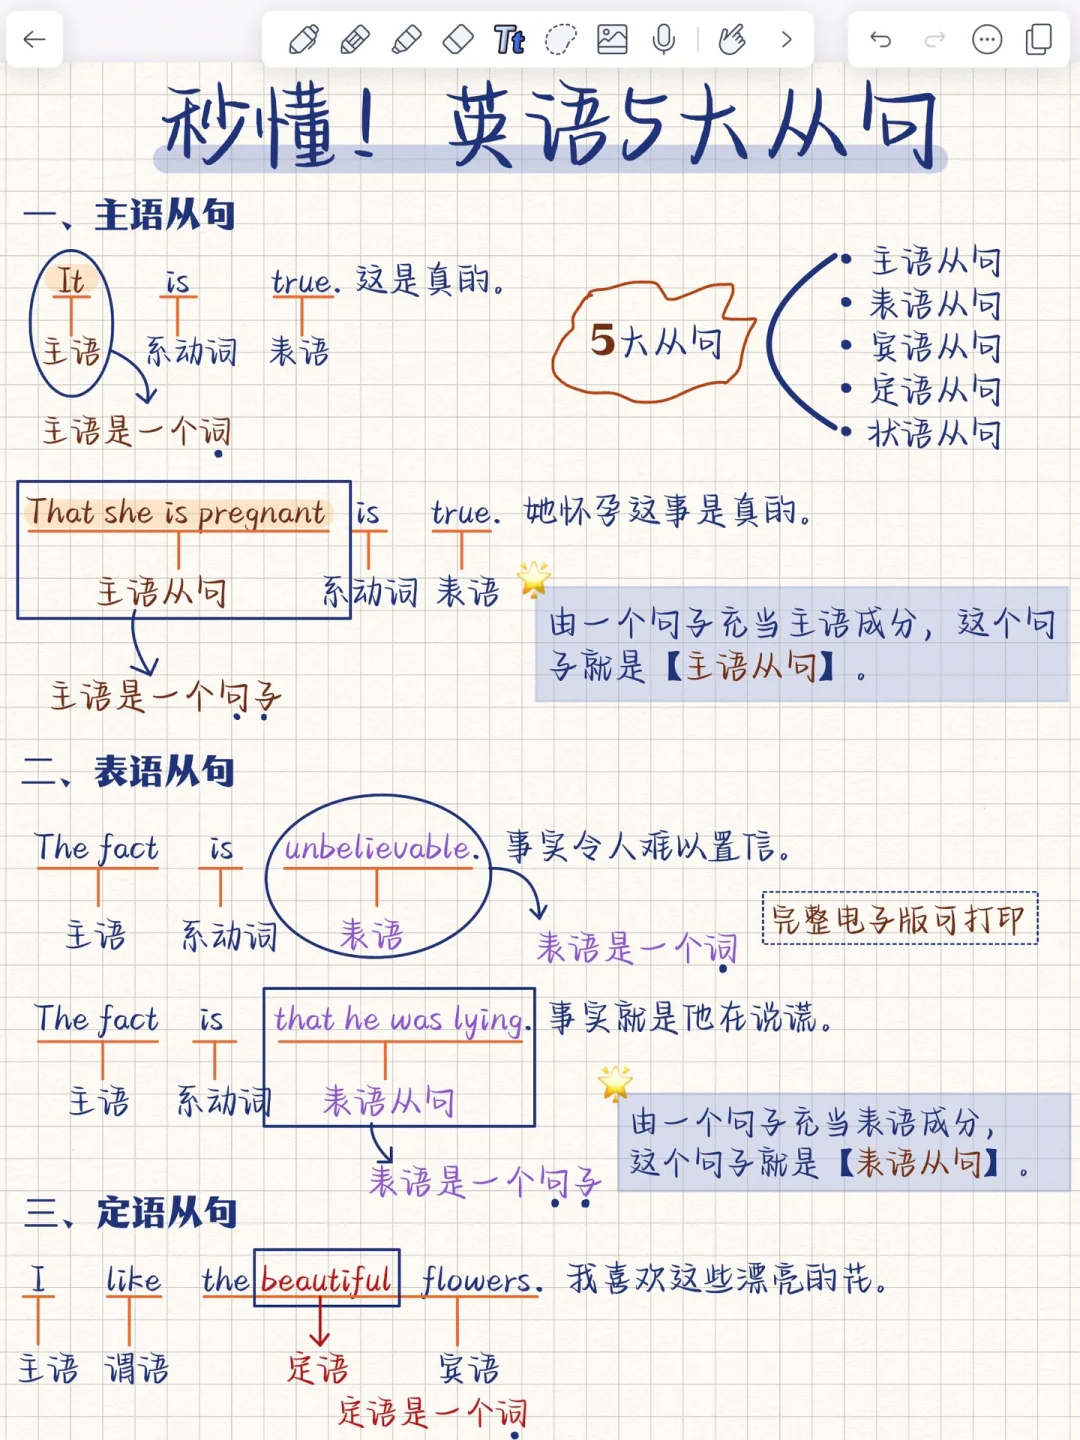 Tt
秒懂！英语5大从句
一、主语从句
It is true. 这是真的。
主语 系动词 表语
主语是一个词
5大从句
主语从句
表语从句
宾语从句
定语从句
状语从句
That she is pregnant is true. 她怀孕这事是真的。
主语从句 系动词 表语
主语是一个句子
由一个句子充当主语成分，这个句
子就是【主语从句】。
二、表语从句
The fact is unbelievable. 事实令人难以置信。
主语 系动词 表语
表语是一个词
完整电子版可打印
The fact is that he was lying. 事实就是他在说谎。
主语 系动词 表语从句
表语是一个句子
由一个句子充当表语成分，
这个句子就是【表语从句】。
三、定语从句
I like the beautiful flowers. 我喜欢这些漂亮的花。
主语 谓语 定语 宾语
定语是一个词